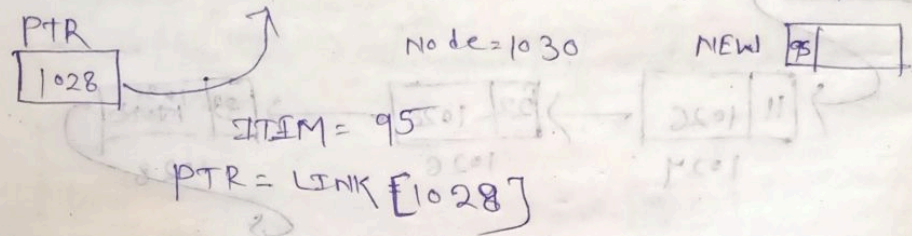 PTR
1028
Node=1030
NEW 95
ITIM= 95
PTR = LINK [1028]